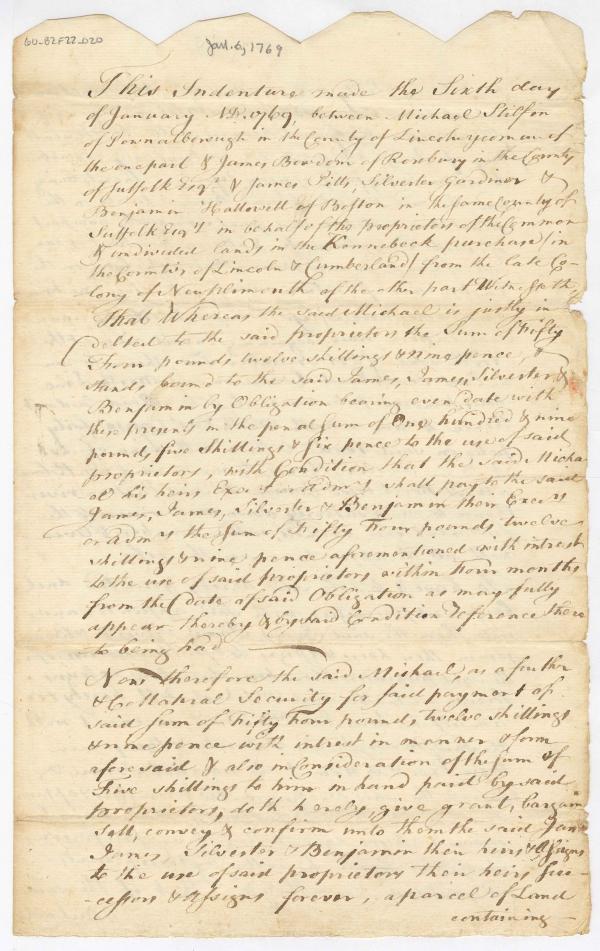 60-B2F22-020
Jan. 6, 1769
This Indenture made the Sixth day
of January AD. 1769, between Michael Stilfon
of Pownalborough in the County of Lincoln yeoman of
the one part & James Bowdoin of Roxbury in the County
of Suffolk Esqr & James Pitts, Silvester Gardiner &
Benjamin Hallowell of Boston in the same County of
Suffolk Esqrs in behalf of the proprietors of the Common
& undivided lands in the Kennebeck purchase (in
the Counties of Lincoln & Cumberland) from the late Co-
lony of New plimouth of the other part Witnesseth,
That Whereas the said Michael is justly in
debted to the said proprietors the Sum of Fifty
Four pounds twelve shillings & nine pence, &
stands bound to the said James, James, Silvester &
Benjamin by Obligation bearing even date with
these presents in the penal sum of One hundred & nine
pounds five shillings & six pence to the use of said
proprietors, with Condition that the said Micha
el his heirs Execrs or Admrs shall pay to the said
James, James, Silvester & Benjamin their Execrs
or Admrs the Sum of Fifty Four pounds twelve
shillings & nine pence aforementioned with intrest
to the use of said proprietors within four months
from the date of said Obligation as may fully
appear thereby & by said Condition reference there
to being had
Now therefore the said Michael, as a further
& Collateral Security for said payment of
said sum of Fifty Four pounds, twelve shillings
& nine pence with intrest in manner & form
aforesaid & also in Consideration of the sum of
Five shillings to him in hand paid by said
proprietors, doth hereby give grant, bargain
sell, convey & confirm unto them the said James
James, Silvester & Benjamin their heirs & assigns
to the use of said proprietors their heirs suc-
cessors & assigns forever, a parcel of Land
containing